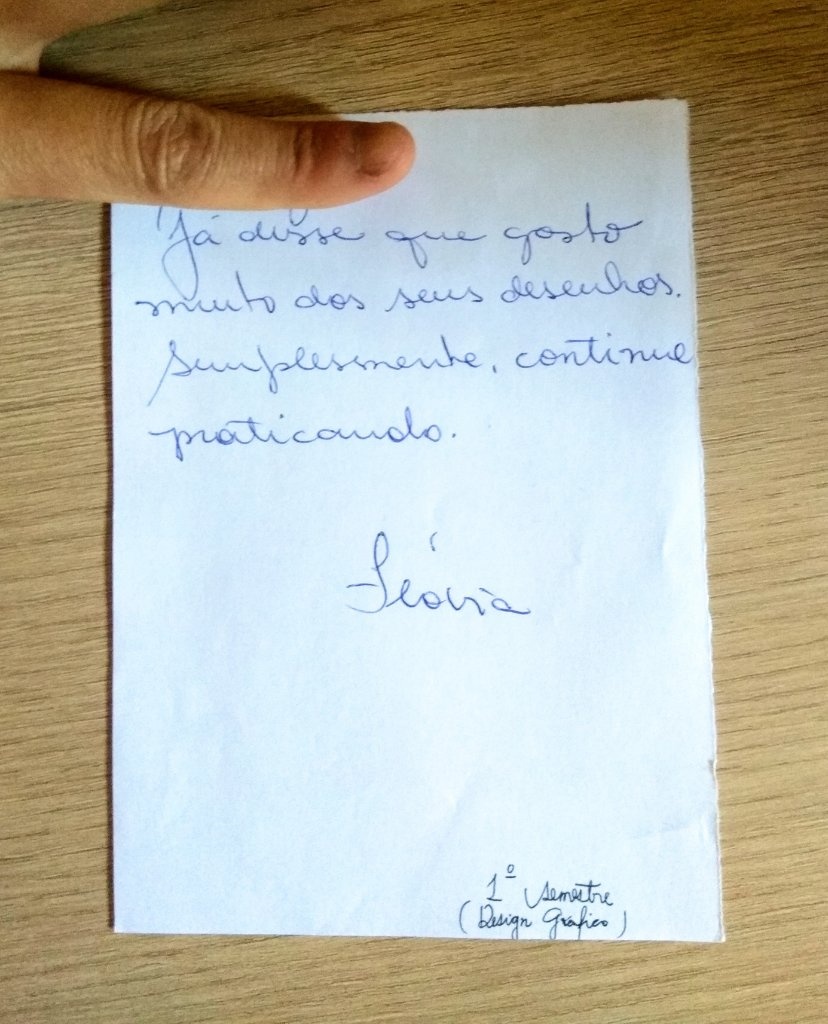 Já disse que gosto
muito dos seus desenhos.
Simplesmente, continue
praticando.
Flávia
1º semestre
(Design Gráfico)